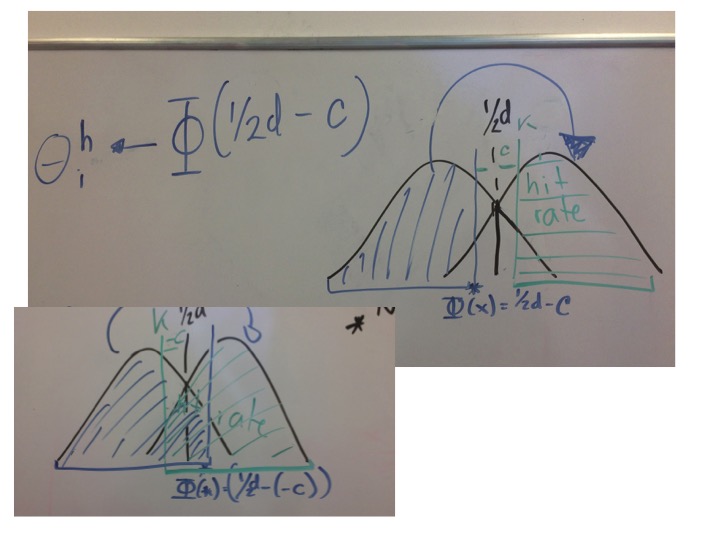 Θᵢʰ ← Φ(½d - c)
½d
K
c
hit
rate
Φ(x) = ½d - C
K ½d
=c
rate
Φ(x) = (½d - (-c))